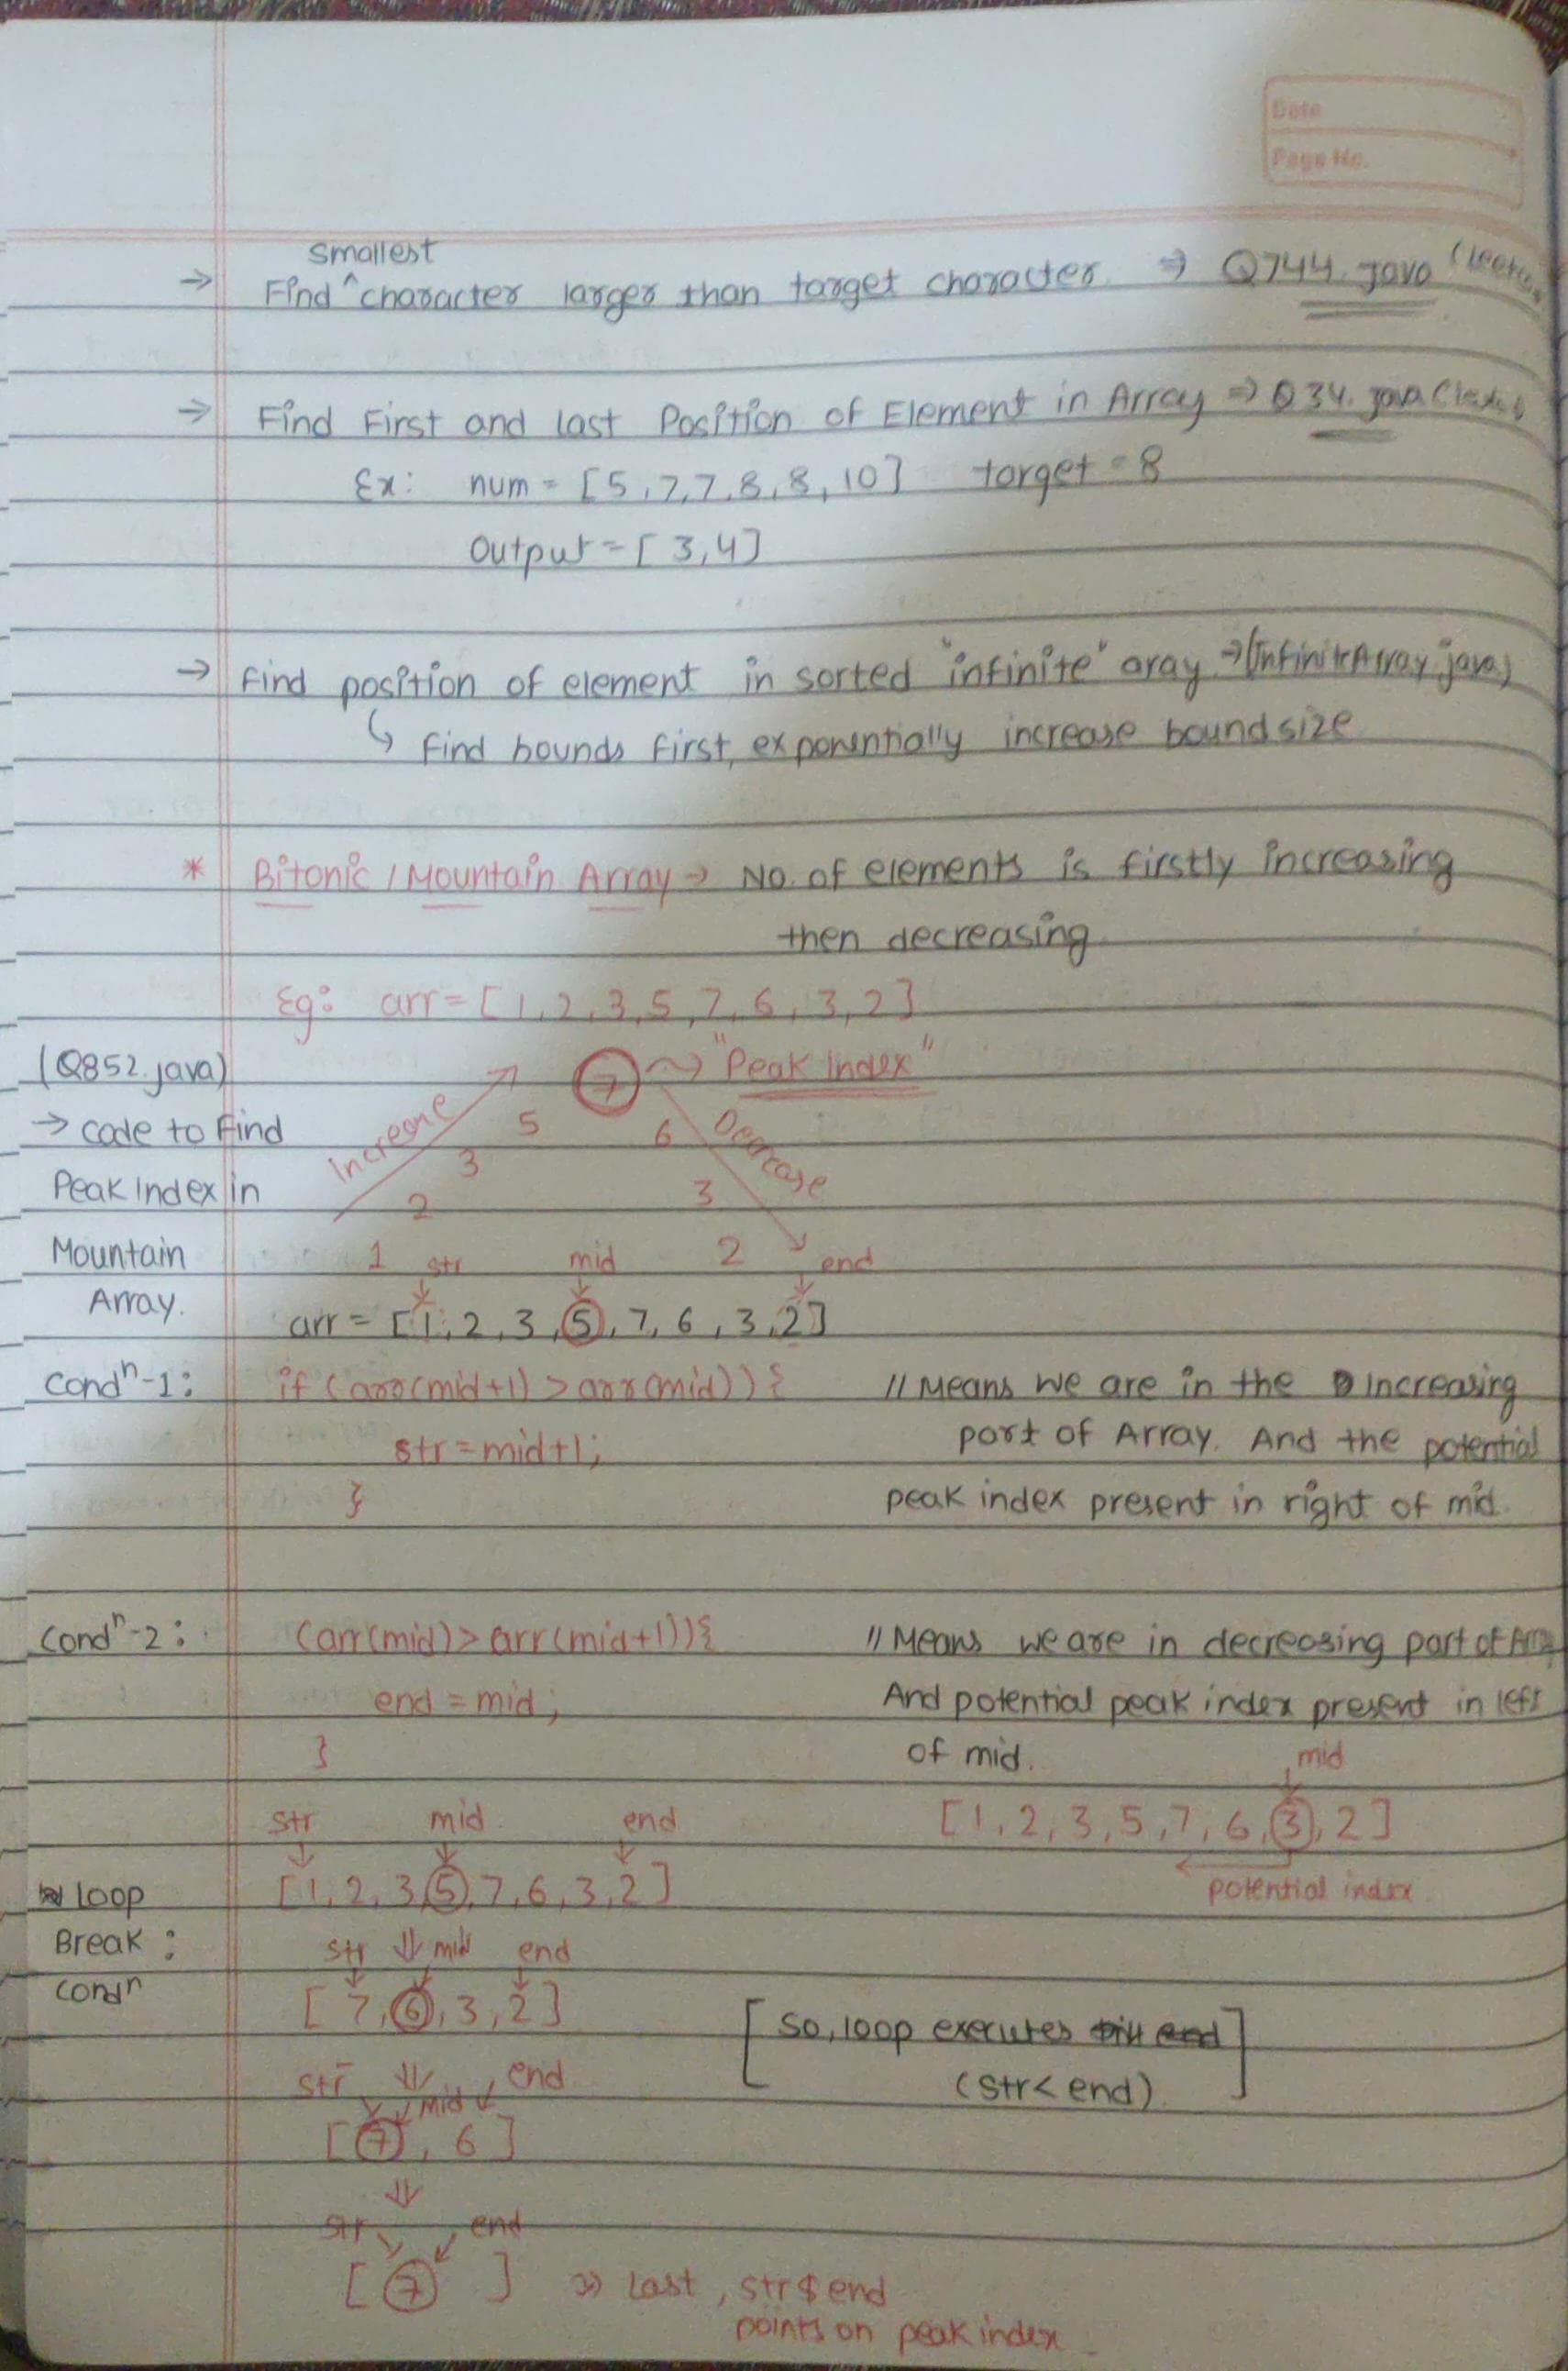 Date
Page No.
smallest
→ Find ^ character larger than target character ⇒ Q744.java
→ Find First and last Position of Element in Array ⇒ Q34.java
Ex: num = [5,7,7,8,8,10] target = 8
Output = [3,4]
→ Find position of element in sorted "infinite" aray → (InfiniteArray.java)
↳ Find bounds first, exponentially increase bound size
* Bitonic / Mountain Array → No. of elements is firstly increasing
then decreasing
Eg: arr = [1,2,3,5,7,6,3,2]
(Q852.java)
→ code to Find
Peak Index in
Mountain
Array.
7 ⇝ "Peak Index"
Increase 5 6 Decrease
3
2 3
1 2
str mid end
arr = [1,2,3,5,7,6,3,2]
Condⁿ-1: if (arr(mid+1) > arr(mid)) { // Means we are in the increasing
str = mid+1; part of Array. And the potential
} peak index present in right of mid.
Condⁿ-2: (arr(mid) > arr(mid+1)){ // Means we are in decreasing part of
end = mid; And potential peak index present in left
} of mid.
mid
[1,2,3,5,7,6,3,2]
potential index
str mid end
loop [1,2,3,5,7,6,3,2]
Break :
Condⁿ
str ⇓ mid end
[7,6,3,2]
[So, loop executes till end
(str < end)]
str ⇓ mid end
[7, 6]
⇓
str end
[7] ⇒ Last, str & end
points on peak index